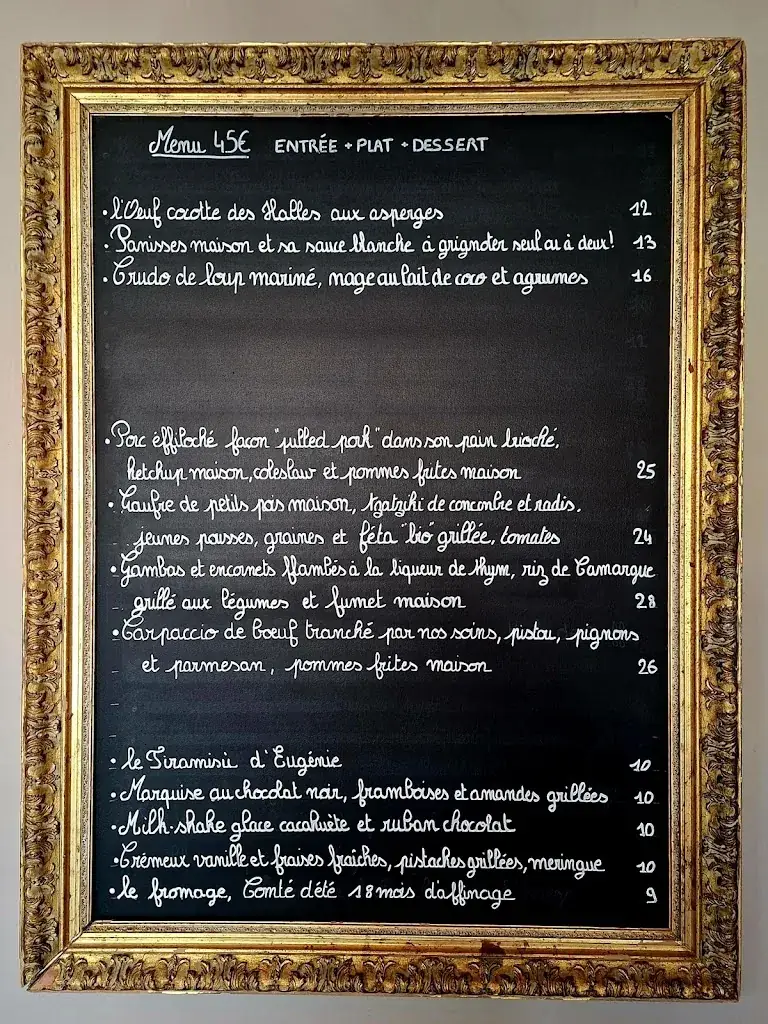 Menu 45€ ENTRÉE + PLAT + DESSERT
• l'Oeuf cocotte des Halles aux asperges 12
• Panisses maison et sa sauce blanche à grignoter seul ou à deux! 13
• Crudo de loup mariné, nage au lait de coco et agrumes 16
• Porc éffiloché façon "pulled pork" dans son pain brioché,
ketchup maison, coleslaw et pommes frites maison 25
• Gaufre de petits pois maison, tzatziki de concombre et radis,
jeunes pousses, graines et féta "bio" grillée, tomates 24
• Gambas et encornets flambés à la liqueur de thym, riz de Camargue
grillé aux légumes et fumet maison 28
• Carpaccio de boeuf tranché par nos soins, pistou, pignons
et parmesan, pommes frites maison 26
• le Tiramisù d'Eugénie 10
• Marquise au chocolat noir, framboises et amandes grillées 10
• Milk-shake glace cacahuète et ruban chocolat 10
• Crémeux vanille et fraises fraîches, pistaches grillées, meringue 10
• le fromage, Comté d'été 18 mois d'affinage 9